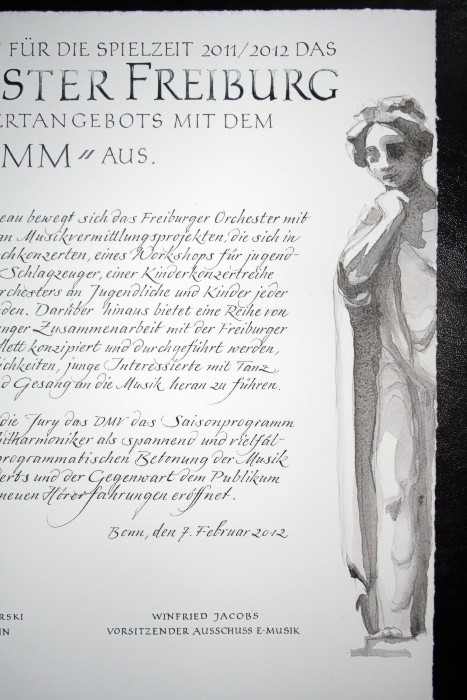 FÜR DIE SPIELZEIT 2011/2012 DAS
STER FREIBURG
ERTANGEBOTS MIT DEM
MM" AUS.
eau bewegt sich das Freiburger Orchester mit
an Musikvermittlungsprojekten, die sich in
chkonzerten, eines Workshops für jugend-
Schlagzeuger, einer Kinderkonzertreihe
rchesters an Jugendliche und Kinder jeder
den. Darüber hinaus bietet eine Reihe von
nger Zusammenarbeit mit der Freiburger
lett konzipiert und durchgeführt werden,
ichkeiten, junge Interessierte mit Tanz
d Gesang an die Musik heran zu führen.
die Jury das DMV das Saisonprogramm
hilharmoniker als spannend und vielfäl-
programmatischen Betonung der Musik
erbs und der Gegenwart dem Publikum
neuen Hörerfahrungen eröffnet.
Bonn, den 7. Februar 2012
RSKI
WINFRIED JACOBS
IN
VORSITZENDER AUSSCHUSS E-MUSIK